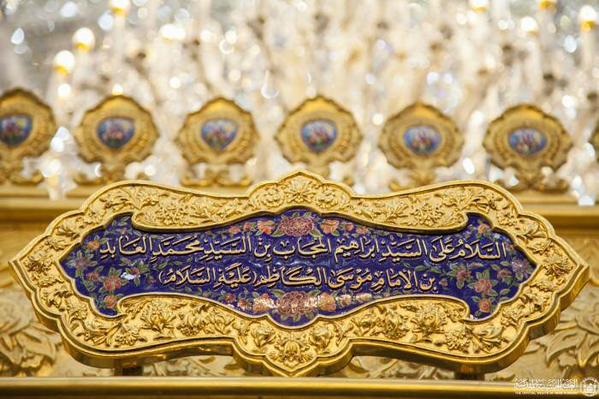 السَّلَامُ عَلَى السَّيِّدِ إبْرَاهِيمَ المُجَابِ بِنِ السَّيِّدِ مُحَمَّدٍ العَابِدِ
بِنِ الإِمَامِ مُوسَى الكَاظِمِ (عَلَيْهِ السَّلَامُ)